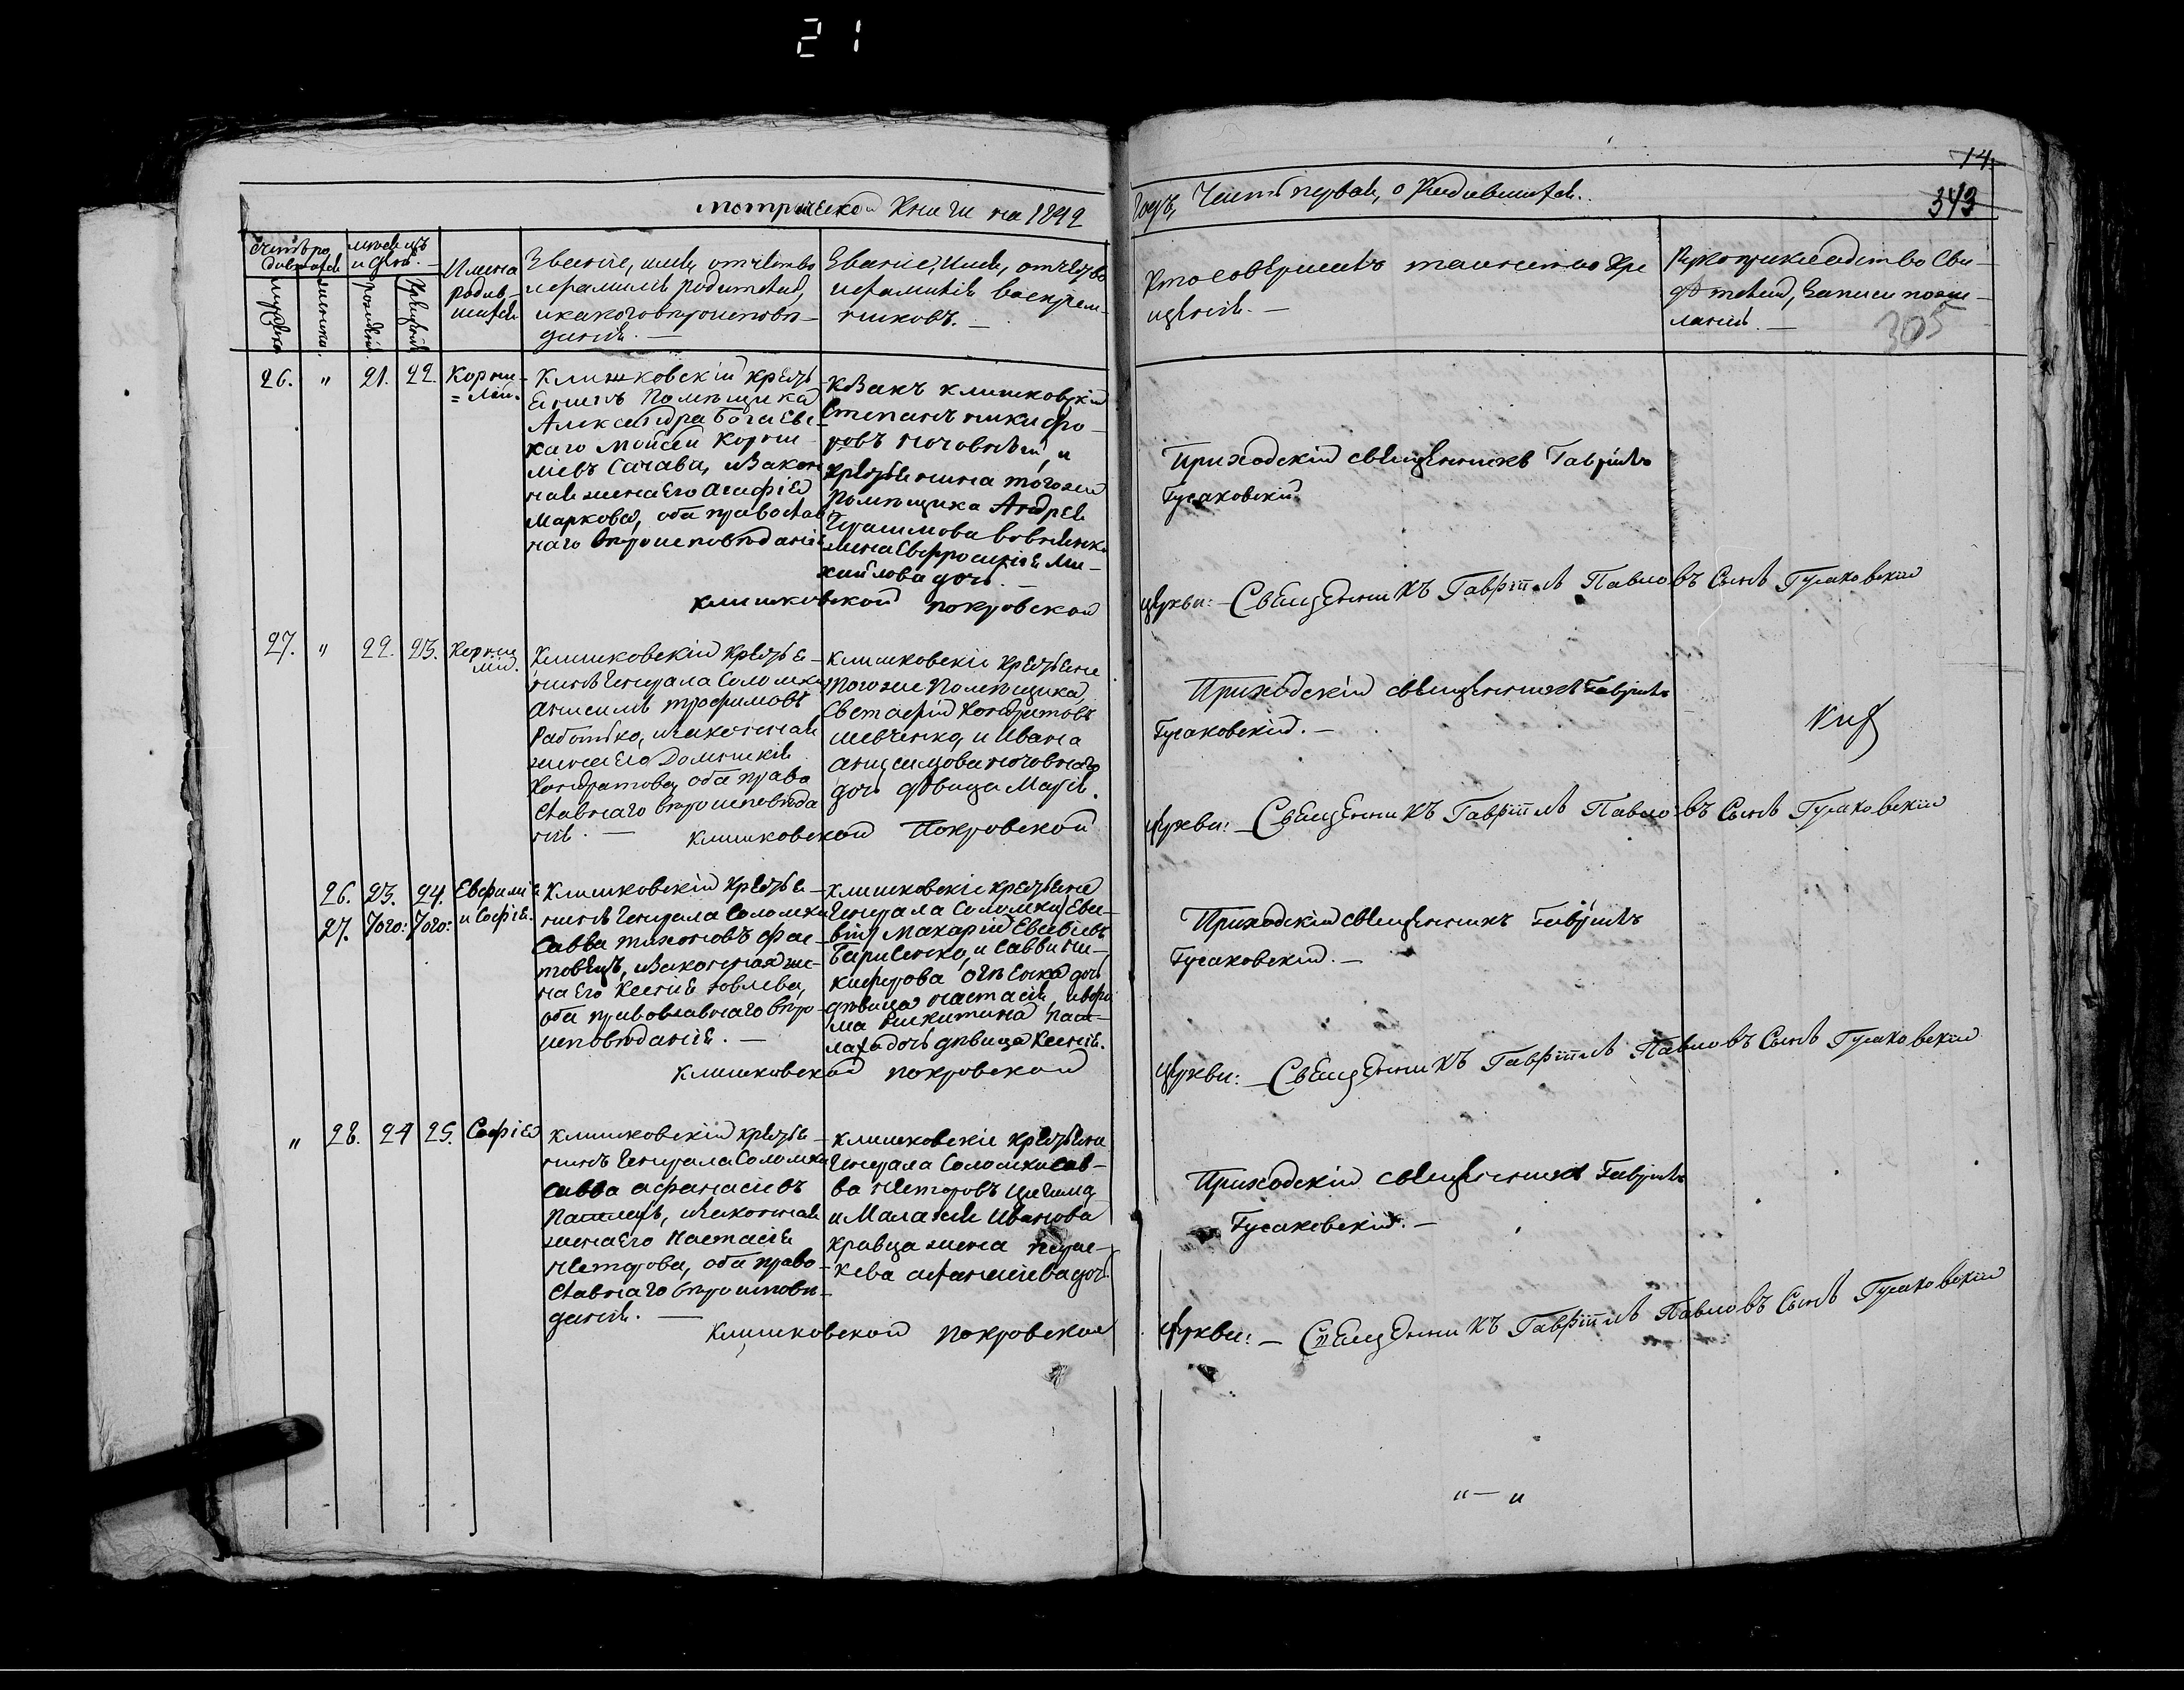 21
14.
343
305
Метрической Книги на 1842
Годъ, Часть первая, о Родившихся.
Счетъ ро
дившихся
мужеска
женска.
месяцъ
и день.
рожденія
крещенія
Имена
родив-
шихся
Званіе, имя, отчество
и фамилія родителей,
и какого вѣроисповѣ-
данія. —
Званіе, Имя, отчество
и фамилія воспрем-
никовъ. —
Кто совершалъ таинство Кре
щенія. —
Рукоприкладство Сви-
дѣтелей, записи по же-
ланію. —
26. " 21. 22. Корни-
= лій.
Клишковскій кресть
янинъ Помѣщика
Александра Богаев
каго Мойсей Корни
ліевъ Сачава, и закон
ная жена Его Агафія
Маркова, оба православ
наго вѣроисповѣданія
Козакъ клишковскій
Степанъ никифо-
ровъ ночовный, и
крестьянина тогожъ
Помѣщика Андрея
Герасимова
жена Евфросинія Ми-
хайлова дочь. —
Приходскій священникъ Гавріилъ
Гусаковскій
клишковской покровской
церкви: — Священникъ Гавріилъ Павловъ Сынъ Гусаковскій
27. " 22. 23. Корни
лій.
Клишковскій крестья-
нинъ Генерала Соломки
Анисимъ трофимовъ
Работько, и законная
жена Его Домникія
Кондратова, оба право
славнаго вѣроисповѣда
нія. —
клишковскіе крестьяне
того же Помѣщика
Евстафій Кондратовъ
шевченко, и Ивана
анисимова ночовнаго
дочь дѣвица Марія.
Приходскій священникъ Гавріилъ
Гусаковскій. —
клишковской Покровской
церкви: — Священникъ Гавріилъ Павловъ Сынъ Гусаковскій
26. 23. 24. Евфимія
27. Того: Того: и Софія.
Клишковскій крестья-
нинъ Генерала Соломки
Савва тихоновъ
и законная же-
на Его Ксенія Іовлева,
оба православнаго вѣро-
исповѣданія. —
клишковскіе крестьяне
Генерала Соломки
Макарій Евсевіевъ
Бариленко, и Саввы ни-
кифорова дочь
дѣвица настасія,
ма Никитина
дочь дѣвица Ксенія.
Приходскій священникъ Гавріилъ
Гусаковскій. —
клишковской покровской
церкви: — Священникъ Гавріилъ Павловъ Сынъ Гусаковскій
" 28. 24 25. Софія
клишковскій крестья-
нинъ Генерала Соломки
Савва афанасіевъ
и законная
жена Его Настасія
Несторова, оба право-
славнаго вѣроисповѣ-
данія. —
клишковскіе крестьяне
Генерала Соломки Сав-
ва Несторовъ
и Малахія Иванова
кравца жена парас-
кева афанасіева дочь.
Приходскій священникъ Гавріилъ
Гусаковскій. —
Клишковской покровской
церкви: — Священникъ Гавріилъ Павловъ Сынъ Гусаковскій
" — "